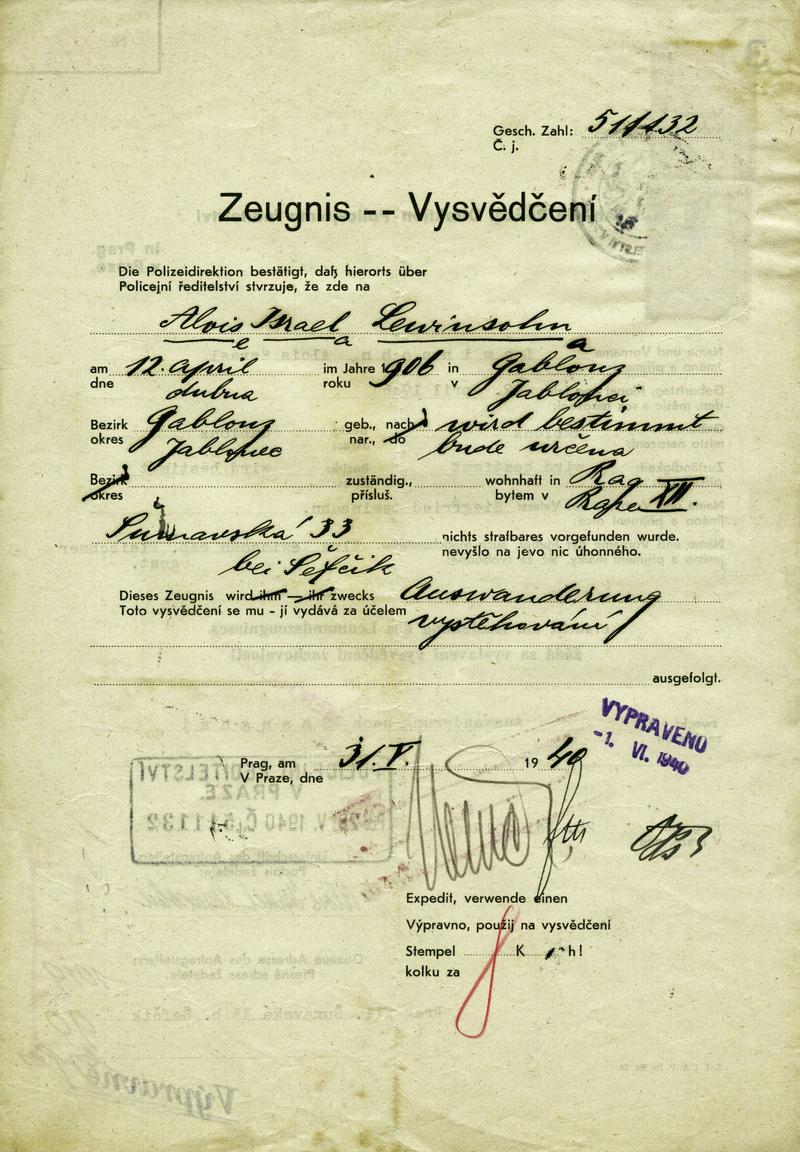 Gesch. Zahl: 511132
Č. j.
Zeugnis -- Vysvědčení
Die Polizeidirektion bestätigt, daß hierorts über
Policejní ředitelství stvrzuje, že zde na
Alois Israel Lewinsohn
e a a
am 12. April im Jahre 1906 in Gablonz
dne dubna roku v Jablonci
Bezirk Gablonz geb., nach wird bestimmt
okres Jablonec nar., do bude určena
Bezirk zuständig., wohnhaft in Prag
okres přísluš. bytem v Praze XII.
Šumavská 33 nichts strafbares vorgefunden wurde.
nevyšlo na jevo nic úhonného.
bei Šefčik
Dieses Zeugnis wird ihm — ihr zwecks Auswanderung
Toto vysvědčení se mu - jí vydává za účelem vystěhování
ausgefolgt.
VYPRAVENO
-1. VI. 1940
Prag, am 31. V. 1940
V Praze, dne
Expedit, verwende einen
Výpravno, použij na vysvědčení
Stempel K h!
kolku za